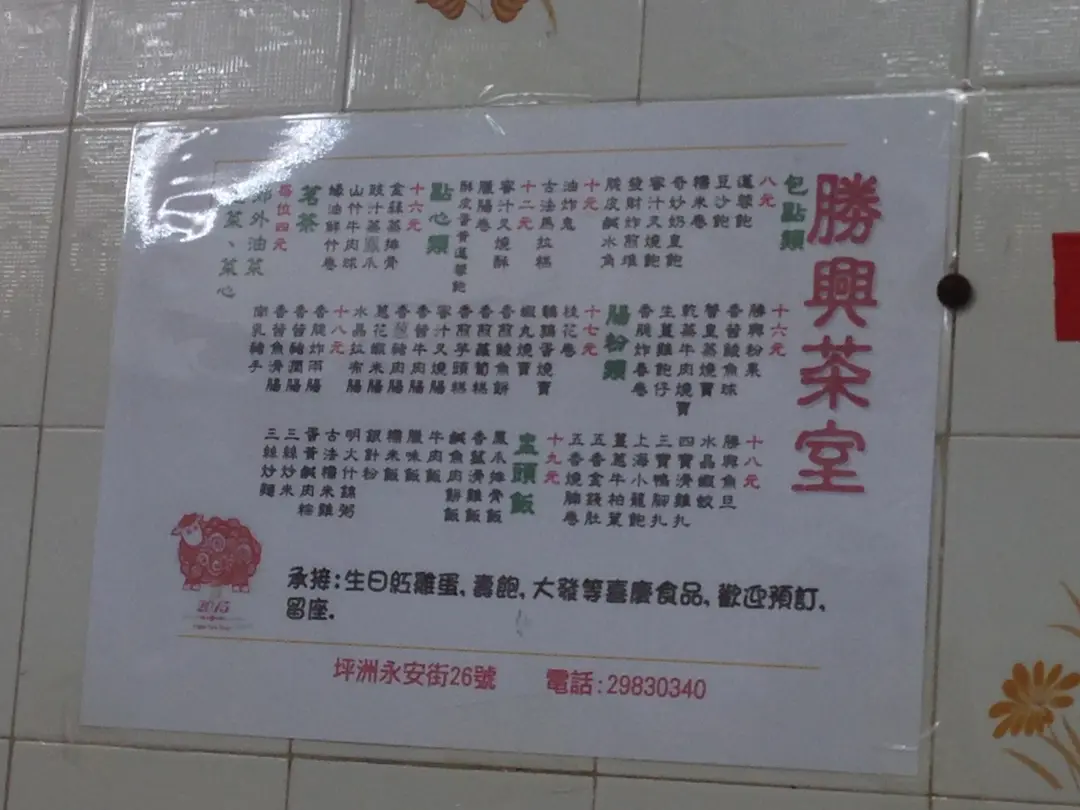 勝興茶室
包點類
八元
蓮蓉飽
豆沙飽
糯米卷
奇妙奶皇飽
蜜汁叉燒飽
發財炸煎堆
脆皮鹹水角
十元
油炸鬼
古法馬拉糕
十二元
蜜汁叉燒酥
臘腸卷
酥皮蛋黃蓮蓉飽
點心類
十六元
金銀蒸排骨
豉汁蒸鳳爪
山竹牛肉球
蠔油鮮竹卷
茗茶
每位四元
郊外油菜
菜、菜心
十六元
勝興粉果
香茜鯪魚球
蟹皇蒸燒賣
乾蒸牛肉燒賣
生薑雞飽仔
香脆炸春卷
腸粉類
十七元
桂花卷
鵪鶉蛋燒賣
蝦丸燒賣
香煎鯪魚餅
香煎蘿蔔糕
香煎芋頭糕
蜜汁叉燒腸
香茜牛肉腸
香葱豬肉腸
葱花蝦米腸
水晶拉布腸
十八元
香脆炸兩腸
香茜豬潤腸
香茜魚滑腸
南乳豬手
十八元
勝興魚旦
水晶蝦餃
四寶滑雞扎
三寶鴨腳扎
上海小籠飽
薑葱牛柏葉
五香金錢肚
五香燒腩卷
十九元
盅頭飯
鳳爪排骨飯
香菇滑雞飯
鹹魚肉餅飯
牛肉飯
臘味飯
糯米飯
銀針粉
明火什錦粥
古法糯米雞
蛋黃鹹肉粽
三絲炒米
三絲炒麵
2015
承接:生日紅雞蛋, 壽飽, 大發等喜慶食品, 歡迎預訂,
留座.
坪洲永安街26號 電話:29830340